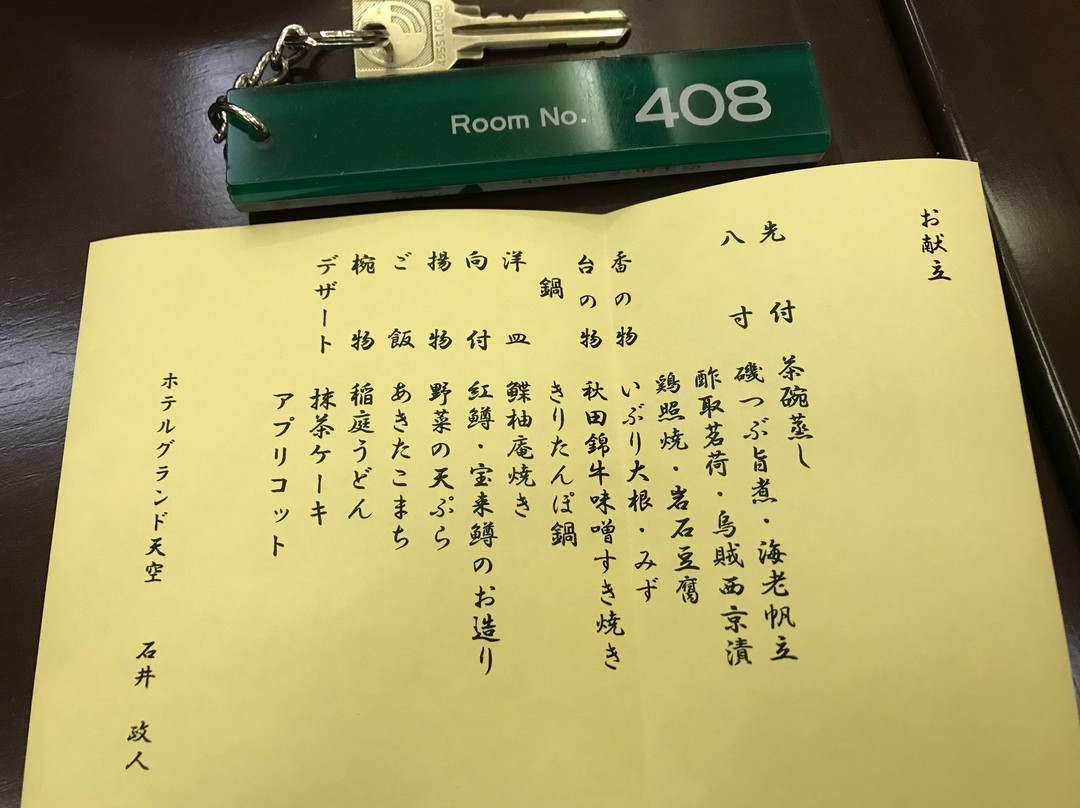 46551C080
Room No. 408
お献立
先付 茶碗蒸し
八寸 磯つぶ旨煮・海老帆立
酢取茗荷・烏賊西京漬
鶏照焼・岩石豆腐
香の物 いぶり大根・みず
台の物 秋田錦牛味噌すき焼き
鍋 きりたんぽ鍋
洋皿 鰈柚庵焼き
向付 紅鱒・宝来鱒のお造り
揚物 野菜の天ぷら
ご飯 あきたこまち
椀物 稲庭うどん
デザート 抹茶ケーキ
アプリコット
ホテルグランド天空 石井 政人